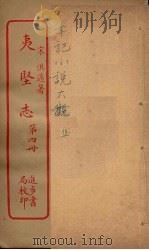 宋 洪邁著
夷堅志
第四册
進步書
局校印
筆記小說大觀